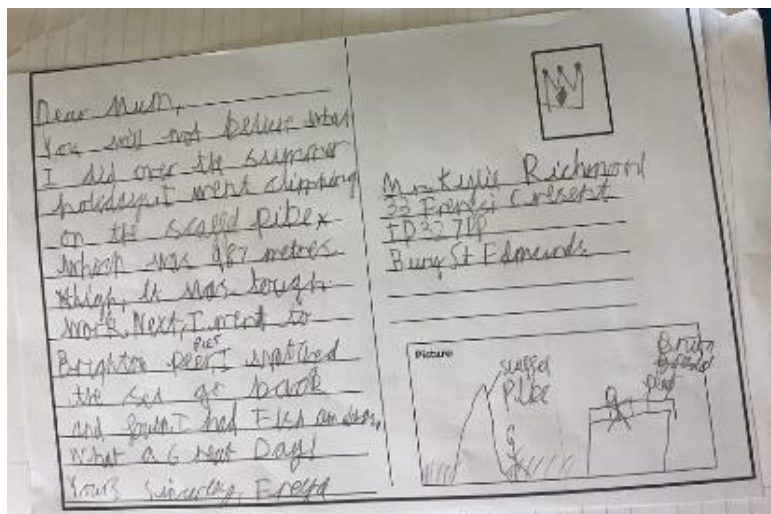 Dear Mum,
You will not beliue what
I did over the summer
holidays. I went climbing
on the scaffel pike
which was 987 metres
high, it was tough
work. Next, I went to
Brighton peer pier I watched
the sea go back
and I had Fish
What a Great Day!
Yours sincerley, Freya
Kylie Richmond
33 Cresent
Bury St Edmunds
Picture
scaffel
Pike